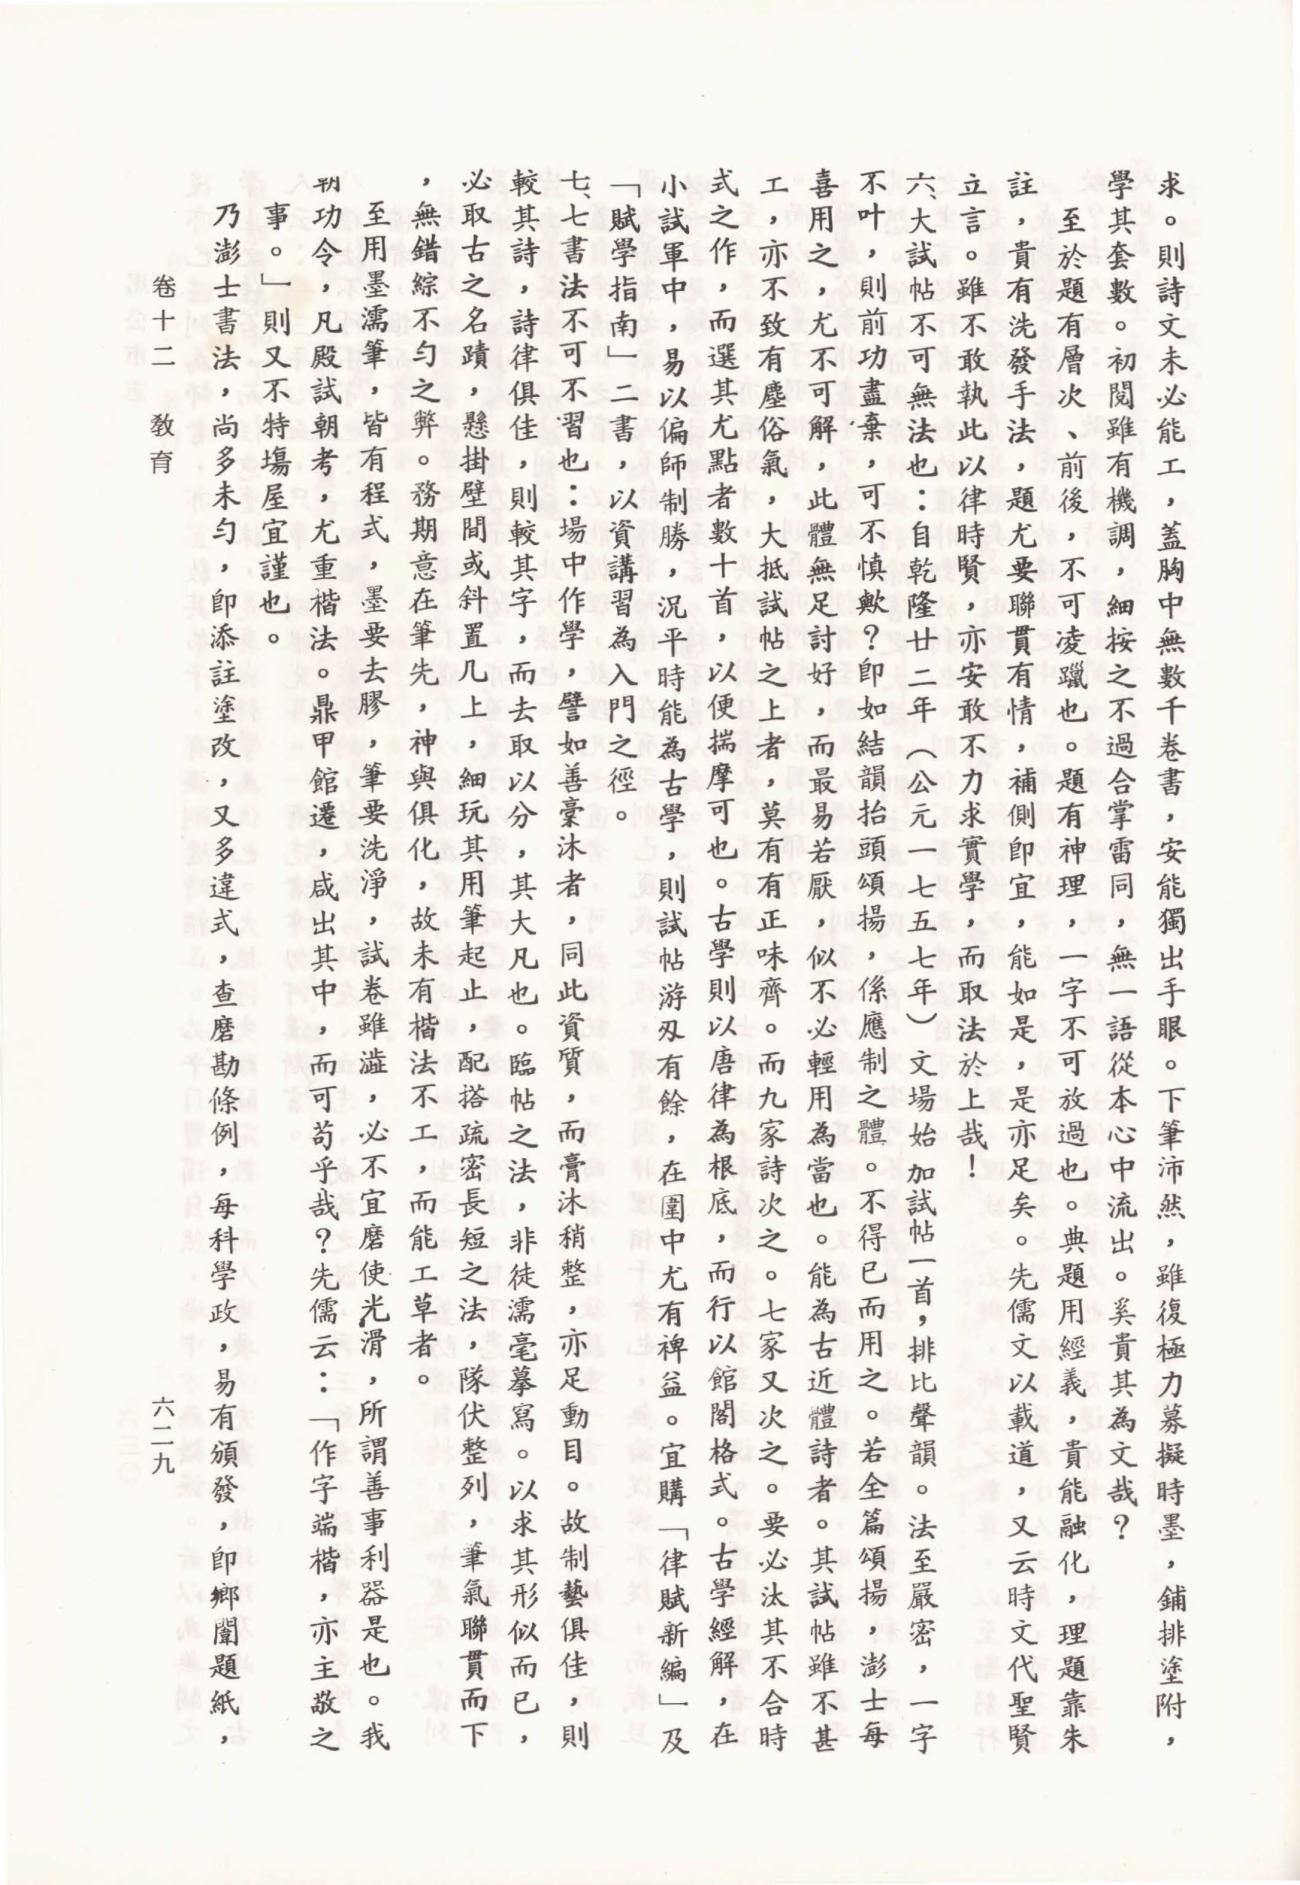 求。則詩文未必能工，蓋胸中無數千卷書，安能獨出手眼。下筆沛然，雖復極力摹擬時墨，鋪排塗附，
學其套數。初閱雖有機調，細按之不過合掌雷同，無一語從本心中流出。奚貴其為文哉？
至於題有層次、前後，不可凌躐也。題有神理，一字不可放過也。典題用經義，貴能融化，理題靠朱
註，貴有洗發手法，題尤要聯貫有情，補側卽宜，能如是，是亦足矣。先儒文以載道，又云時文代聖賢
立言。雖不敢執此以律時賢，亦安敢不力求實學，而取法於上哉！
六、大試帖不可無法也：自乾隆廿二年（公元一七五七年）文場始加試帖一首，排比聲韻。法至嚴密，一字
不叶，則前功盡棄，可不慎歟？卽如結韻抬頭頌揚，係應制之體。不得已而用之。若全篇頌揚，澎士每
喜用之，尤不可解，此體無足討好，而最易若厭，似不必輕用為當也。能為古近體詩者。其試帖雖不甚
工，亦不致有塵俗氣，大抵試帖之上者，莫有有正味齊。而九家詩次之。七家又次之。要必汰其不合時
式之作，而選其尤點者數十首，以便揣摩可也。古學則以唐律為根底，而行以館閣格式。古學經解，在
小試軍中，易以偏師制勝，況平時能為古學，則試帖游刃有餘，在圍中尤有裨益。宜購「律賦新編」及
「賦學指南」二書，以資講習為入門之徑。
七、七書法不可不習也：場中作學，譬如善稾沐者，同此資質，而膏沐稍整，亦足動目。故制藝俱佳，則
較其詩，詩律俱佳，則較其字，而去取以分，其大凡也。臨帖之法，非徒濡毫摹寫。以求其形似而已，
必取古之名蹟，懸掛壁間或斜置几上，細玩其用筆起止，配搭疏密長短之法，隊伏整列，筆氣聯貫而下
，無錯綜不勻之弊。務期意在筆先，神與俱化，故未有楷法不工，而能工草者。
至用墨濡筆，皆有程式，墨要去膠，筆要洗淨，試卷雖澁，必不宜磨使光滑，所謂善事利器是也。我
朝功令，凡殿試朝考，尤重楷法。鼎甲館遷，咸出其中，而可苟乎哉？先儒云：「作字端楷，亦主敬之
事。」則又不特場屋宜謹也。
乃澎士書法，尚多未勻，卽添註塗改，又多違式，查磨勘條例，每科學政，易有頒發，卽鄉闈題紙，
卷十二　教育
六二九